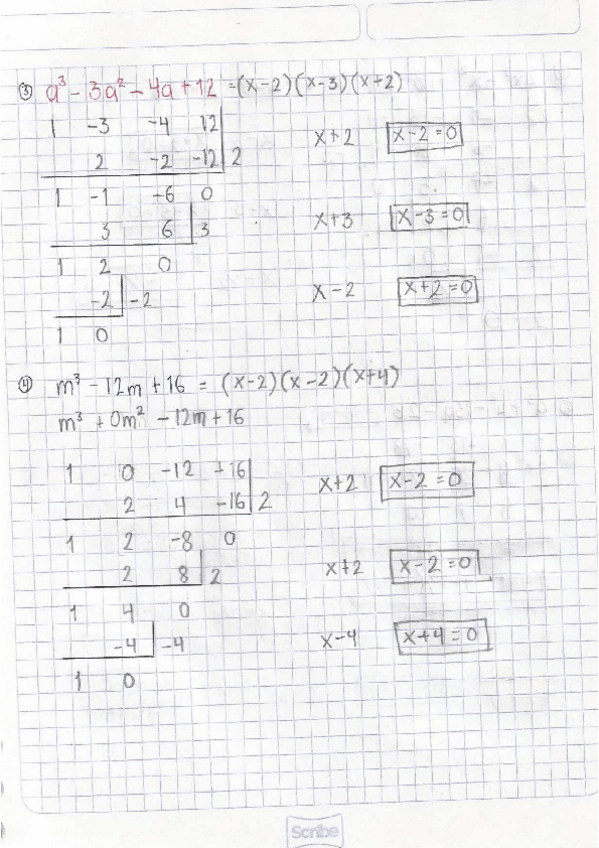 ③ a³ - 3a² - 4a + 12 = (x-2)(x-3)(x+2)
1 -3 -4 12 x+2 x-2=0
2 -2 -12 2
1 -1 -6 0
3 6 3 x+3 x-3=0
1 2 0
-2 -2 x-2 x+2=0
1 0
④ m³ - 12m + 16 = (x-2)(x-2)(x+4)
m³ + 0m² - 12m + 16
1 0 -12 +16 x+2 x-2=0
2 4 -16 2
1 2 -8 0
2 8 2 x+2 x-2=0
1 4 0
-4 -4 x-4 x+4=0
1 0
Scribe